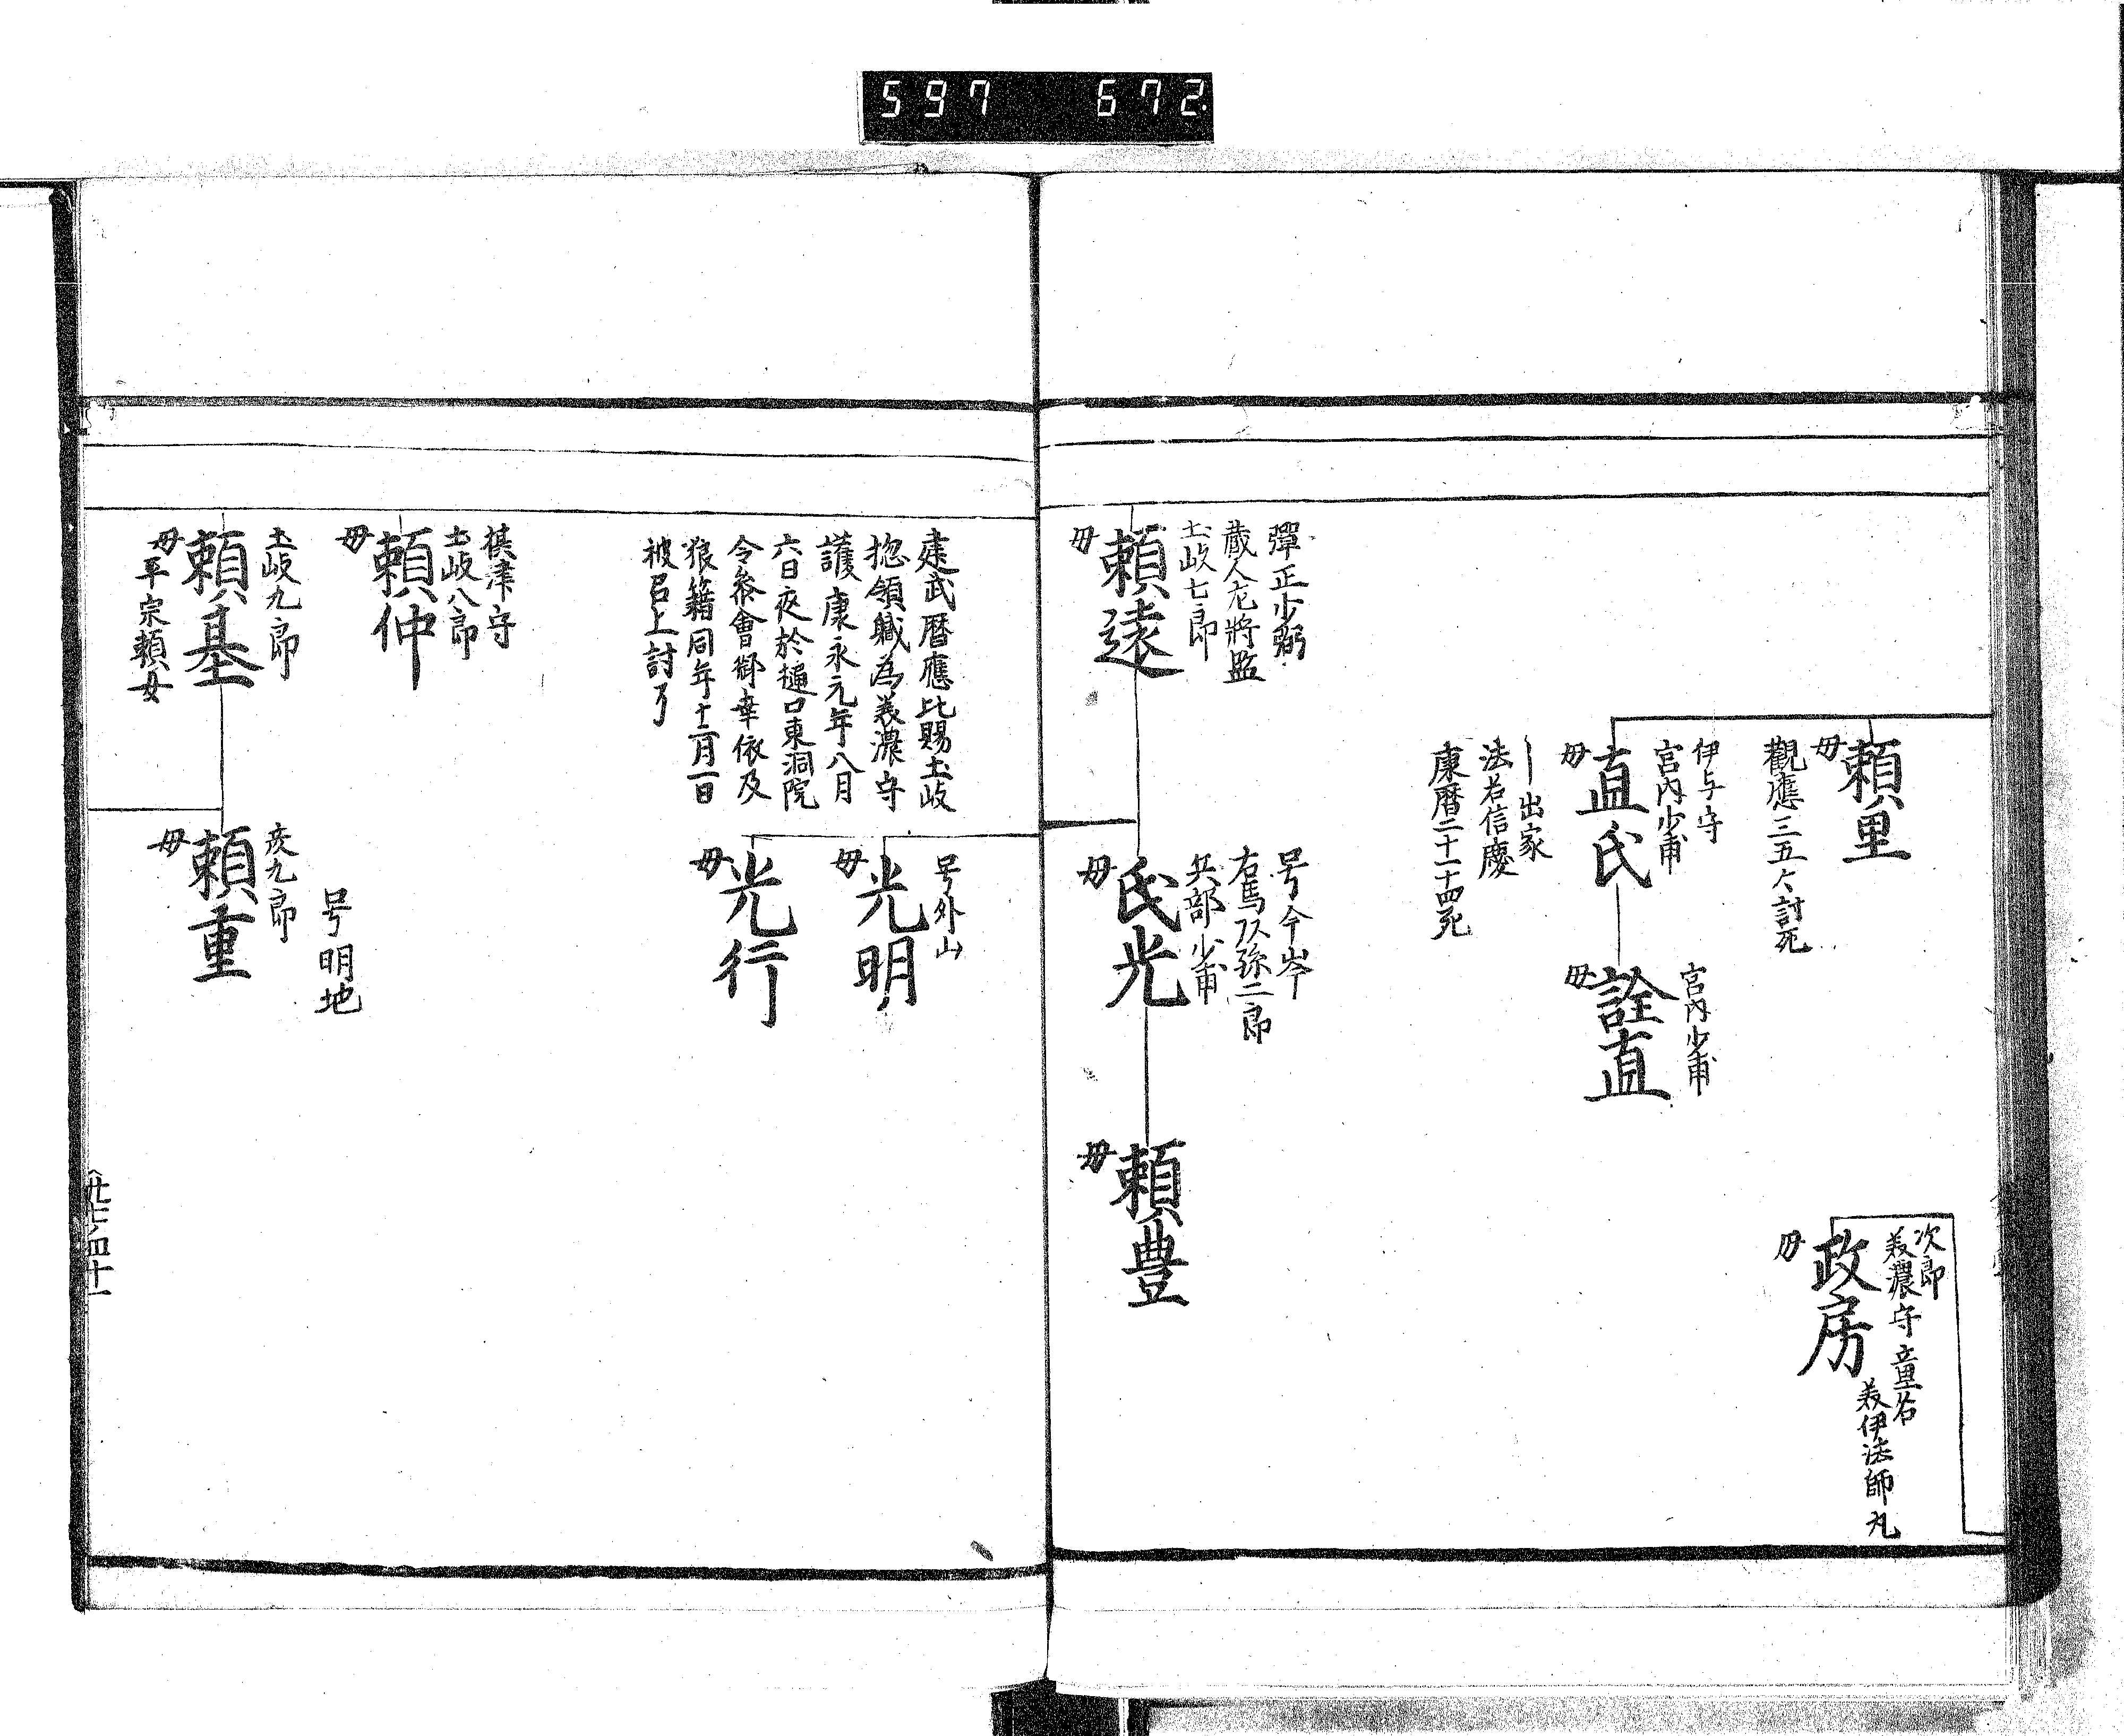 597 672
次郎
美濃守 童名
美伊法師丸
政房
母
頼里
母
觀應三五六討死
伊与守
宮内少甫
直氏
母
出家
法名信慶
康暦二十一十四死
宮内少甫
詮直
母
彈正少弼
蔵人左將監
土岐七郎
頼遠
母
号今岑
右馬 孫二郎
兵部少甫
氏光
母
頼豊
母
建武暦應比賜土岐
惣領職為美濃守
護康永元年八月
六日夜於樋口東洞院
令参會御幸依及
狼籍同年十二月一日
被召上討了
号外山
光明
母
光行
母
摂津守
土岐八郎
頼仲
母
土岐九郎
頼基
母平宗頼女
号明地
彦九郎
頼重
母
四十一